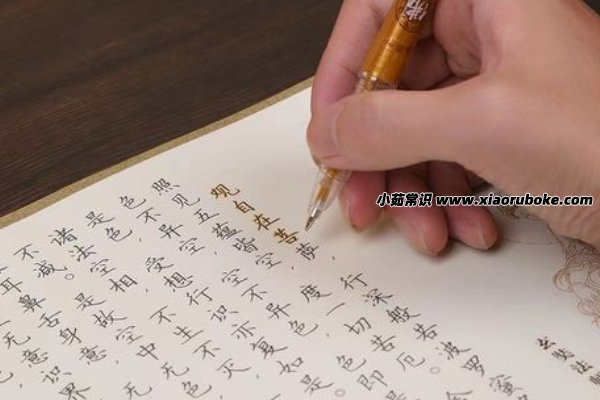 观自在菩萨，行深般若波罗蜜
照见五蕴皆空，度一切苦厄。
色不异空，空不异色，色即
是色，受想行识，亦复如是。
诸法空相，不生不灭
不减。是故空中无色
耳鼻舌身意
无意识界
玄奘法
小茹常识 www.xiaoruboke.com